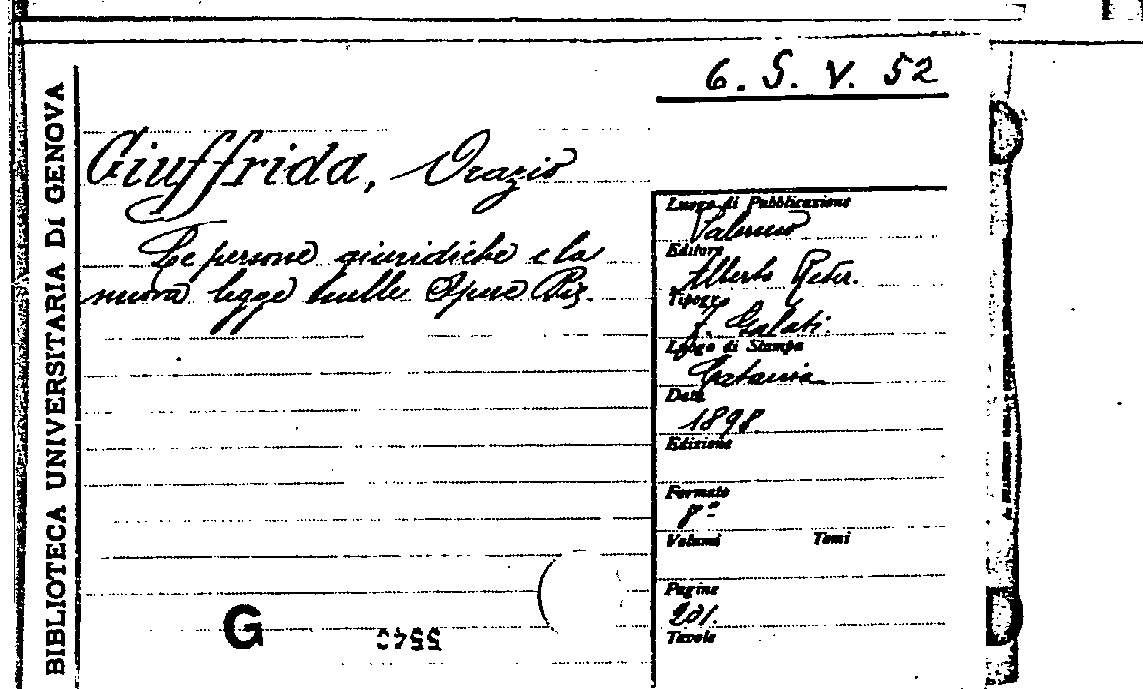 6. S. V. 52
BIBLIOTECA UNIVERSITARIA Di GENOVA
Giuffrida, Orazio
Le persone giuridiche e la
nuova legge sulle Opere Pie.
Luogo di Pubblicazione
Palermo
Editore
Alberto Reber.
Tipogr.
F. Galati.
Luogo di Stampa
Catania
Data
1898.
Edizione
Formato
8°
Volumi Tomi
Pagine
201.
Tavole
G